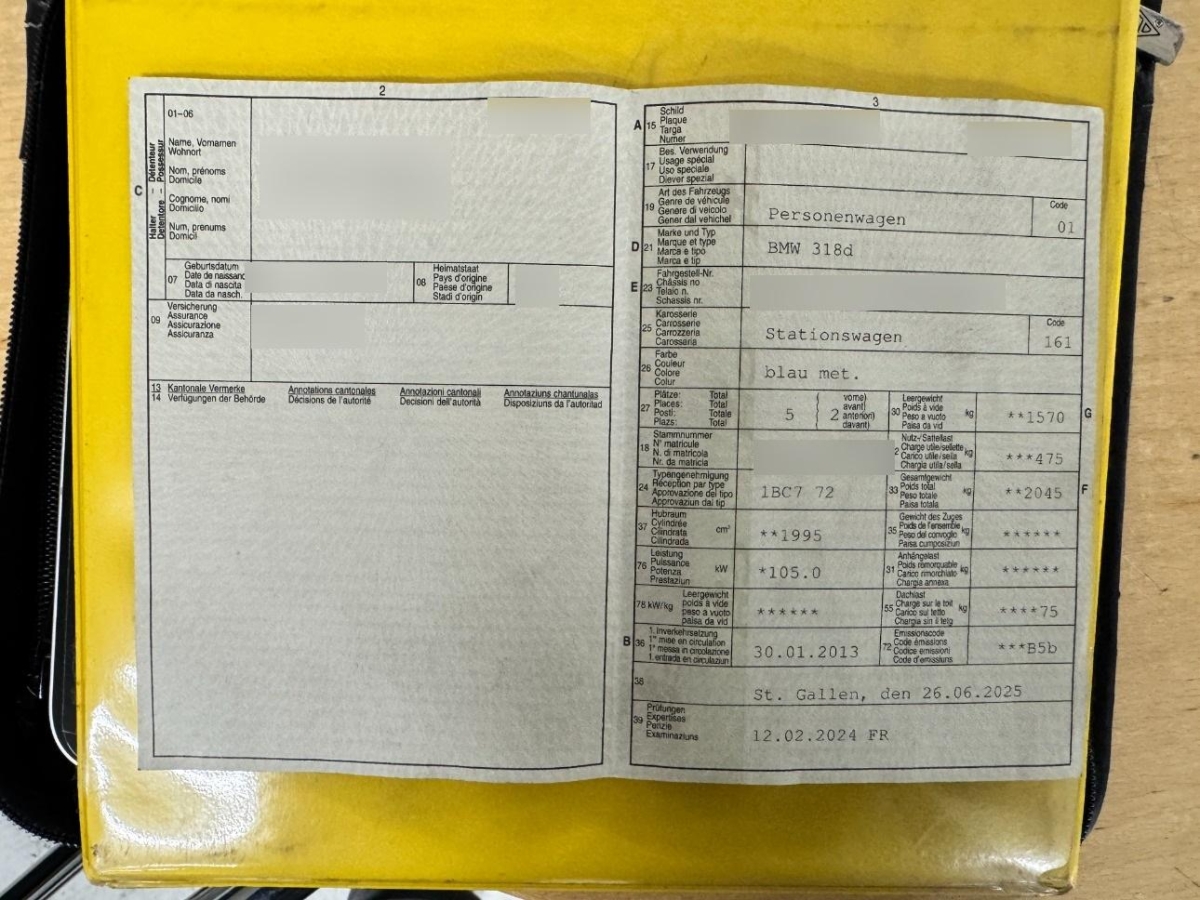 2
01-06
C
Halter – Détenteur
Detentore – Possessur
Name, Vornamen
Wohnort
Nom, prénoms
Domicile
Cognome, nomi
Domicilio
Num, prenums
Domicil
07
Geburtsdatum
Date de naissanc
Data di nascita
Data da nasch.
08
Heimatstaat
Pays d'origine
Paese d'origine
Stadi d'origin
09
Versicherung
Assurance
Assicurazione
Assicuranza
13 Kantonale Vermerke Annotations cantonales Annotazioni cantonali Annotaziuns chantunalas
14 Verfügungen der Behörde Décisions de l'autorité Decisioni dell'autorità Dispoziziuns da l'autoritad
3
A 15
Schild
Plaque
Targa
Numer
17
Bes. Verwendung
Usage spécial
Uso speciale
Diever spezial
19
Art des Fahrzeugs
Genre de véhicule
Genere di veicolo
Gener dal vehichel
Personenwagen
Code
01
D 21
Marke und Typ
Marque et type
Marca e tipo
Marca e tip
BMW 318d
E 23
Fahrgestell-Nr.
Châssis no
Telaio n.
Schassis nr.
25
Karosserie
Carrosserie
Carrozzeria
Carosseria
Stationswagen
Code
161
26
Farbe
Couleur
Colore
Colur
blau met.
27
Plätze: Total
Places: Total
Posti: Totale
Plazs: Total
5
2
vorne)
avant)
anteriori)
davant)
30
Leergewicht
Poids à vide
Peso a vuoto
Paisa da vid
kg
**1570
G
18
Stammnummer
N° matricule
N. di matricola
Nr. da matricla
Nutz-/Sattellast
Charge utile/sellette
Carico utile/sella
Chargia utila/sella
kg
***475
24
Typengenehmigung
Réception par type
Approvazione del tipo
Approvaziun dal tip
1BC7 72
33
Gesamtgewicht
Poids total
Peso totale
Paisa totala
kg
**2045
F
37
Hubraum
Cylindrée
Cilindrata
Cilindrada
cm³
**1995
35
Gewicht des Zuges
Poids de l'ensemble
Peso del convoglio
Paisa cumposiziun
kg
******
76
Leistung
Puissance
Potenza
Prestaziun
kW
*105.0
31
Anhängelast
Poids remorquable
Carico rimorchiato
Chargia annexa
kg
******
78 kW/kg
Leergewicht
poids à vide
peso a vuoto
paisa da vid
******
55
Dachlast
Charge sur le toit
Carico sul tetto
Chargia sin il tetg
kg
****75
B 36
1. Inverkehrsetzung
1re mise en circulation
1a messa in circolazione
1. entrada en circulaziun
30.01.2013
72
Emissionscode
Code émissions
Codice emissioni
Code d'emissiuns
***B5b
38
St. Gallen, den 26.06.2025
39
Prüfungen
Expertises
Perizie
Examinaziuns
12.02.2024 FR